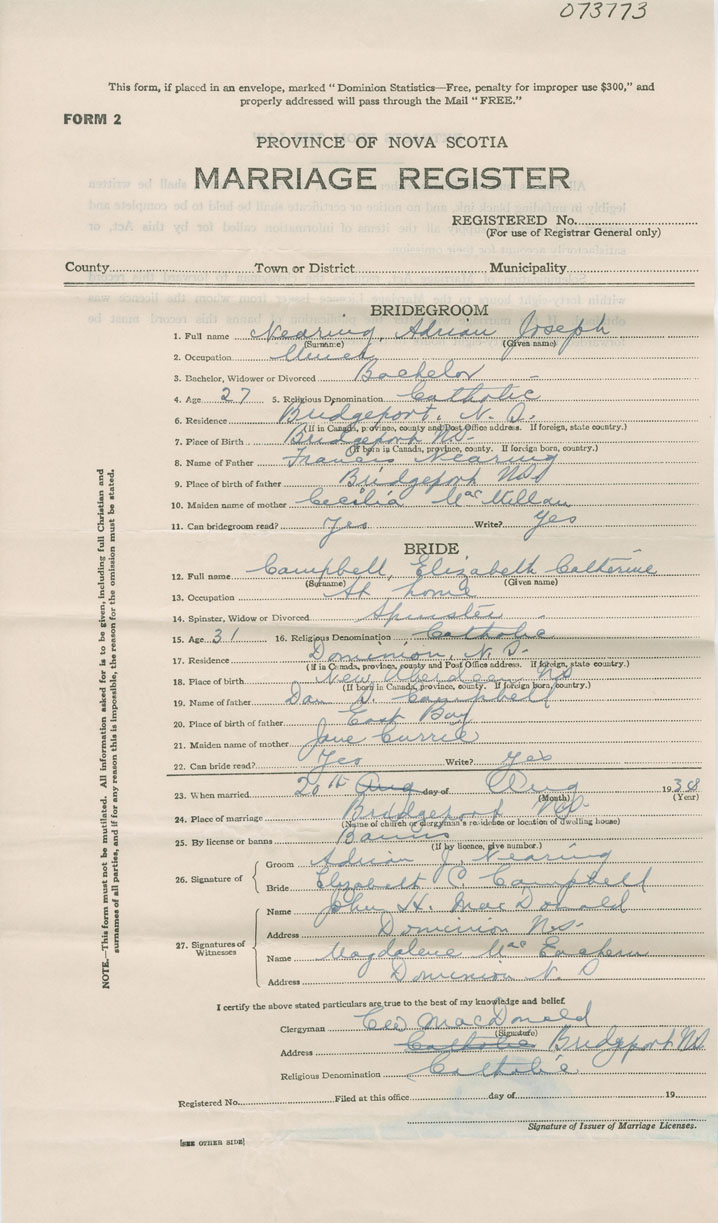 073773
This form, if placed in an envelope, marked "Dominion Statistics—Free, penalty for improper use $300," and
properly addressed will pass through the Mail "FREE."
FORM 2
PROVINCE OF NOVA SCOTIA
MARRIAGE REGISTER
REGISTERED No.
(For use of Registrar General only)
County Town or District Municipality
BRIDEGROOM
1. Full name Nearing, Adrian Joseph
(Surname) (Given name)
2. Occupation
3. Bachelor, Widower or Divorced Bachelor
4. Age 27 5. Religious Denomination Catholic
6. Residence Bridgeport, N.S.
(If in Canada, province, county and Post Office address. If foreign, state country.)
7. Place of Birth Bridgeport NS.
(If born in Canada, province, county. If foreign born, country.)
8. Name of Father Francis Nearing
9. Place of birth of father Bridgeport NS
10. Maiden name of mother Cecilia MacMillan
11. Can bridegroom read? Yes Write? Yes
BRIDE
12. Full name Campbell, Elizabeth Catherine
(Surname) (Given name)
13. Occupation At home
14. Spinster, Widow or Divorced Spinster
15. Age 31 16. Religious Denomination Catholic
17. Residence Dominion, N.S.
(If in Canada, province, county and Post Office address. If foreign, state country.)
18. Place of birth New Aberdeen NS
(If born in Canada, province, county. If foreign born, country.)
19. Name of father Dan Campbell
20. Place of birth of father East Bay
21. Maiden name of mother Jane Currie
22. Can bride read? Yes Write? Yes
23. When married 20th Aug day of Aug 1938
(Month) (Year)
24. Place of marriage Bridgeport NS.
(Name of church or clergyman's residence or location of dwelling house)
25. By license or banns Banns
(If by licence, give number.)
26. Signature of
Groom Adrian J. Nearing
Bride Elizabeth C. Campbell
27. Signatures of Witnesses
Name John H. MacDonald
Address Dominion N.S.
Name Magdalene MacEachern
Address Dominion N.S
I certify the above stated particulars are true to the best of my knowledge and belief.
Clergyman MacDonald
(Signature)
Address Catholic Bridgeport NS
Religious Denomination Catholic
Registered No. Filed at this office day of 19
Signature of Issuer of Marriage Licenses.
[SEE OTHER SIDE]
NOTE.—This form must not be mutilated. All information asked for is to be given, including full Christian and
surnames of all parties, and if for any reason this is impossible, the reason for the omission must be stated.